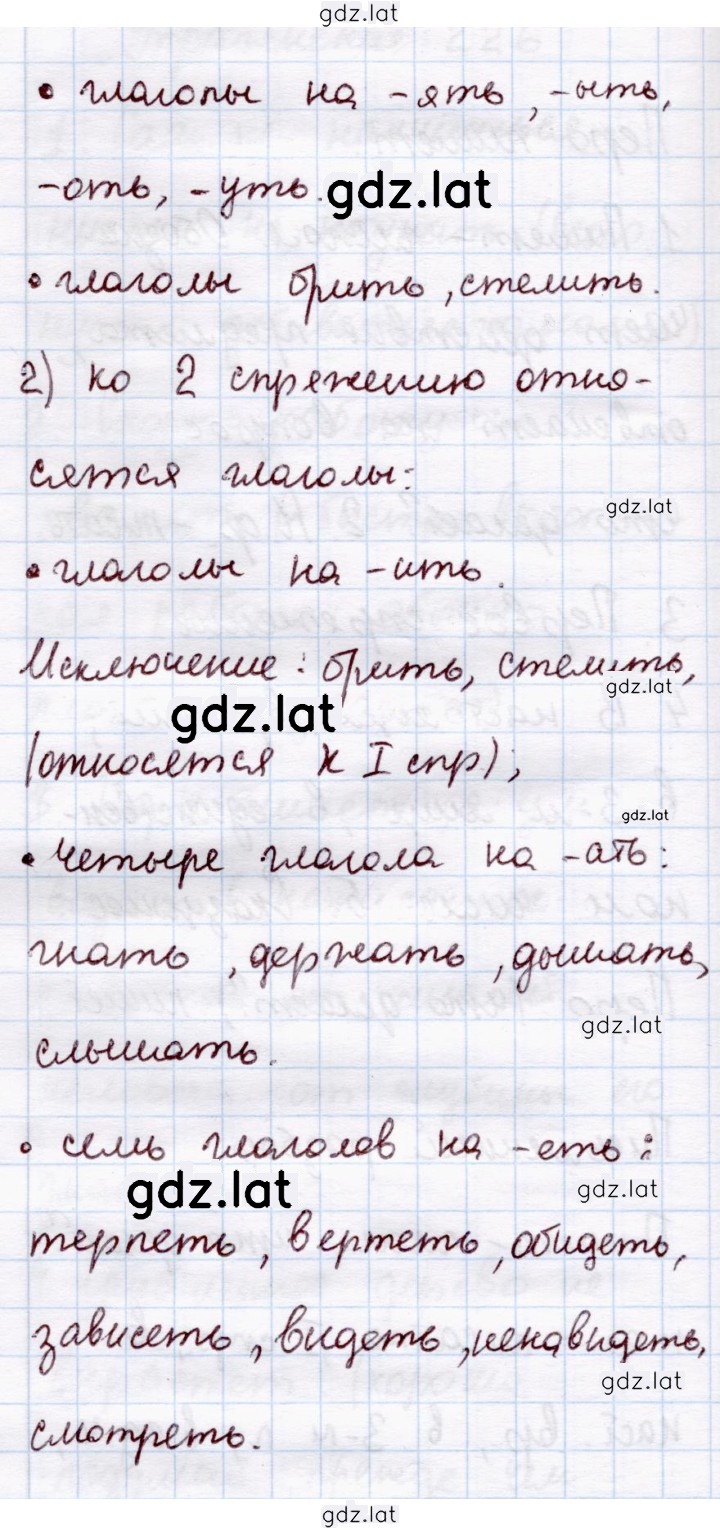 gdz.lat
• глаголы на -ять, -ыть,
-оть, -уть. gdz.lat
• глаголы брить, стелить.
2) ко 2 спряжению отно-
сятся глаголы:
gdz.lat
• глаголы на -ить.
Исключение: брить, стелить,
gdz.lat
gdz.lat
(относятся к I спр);
gdz.lat
• четыре глагола на -ать:
гнать, держать, дышать,
gdz.lat
слышать.
• семь глаголов на -еть:
gdz.lat
gdz.lat
терпеть, вертеть, обидеть,
зависеть, видеть, ненавидеть,
gdz.lat
смотреть.
gdz.lat